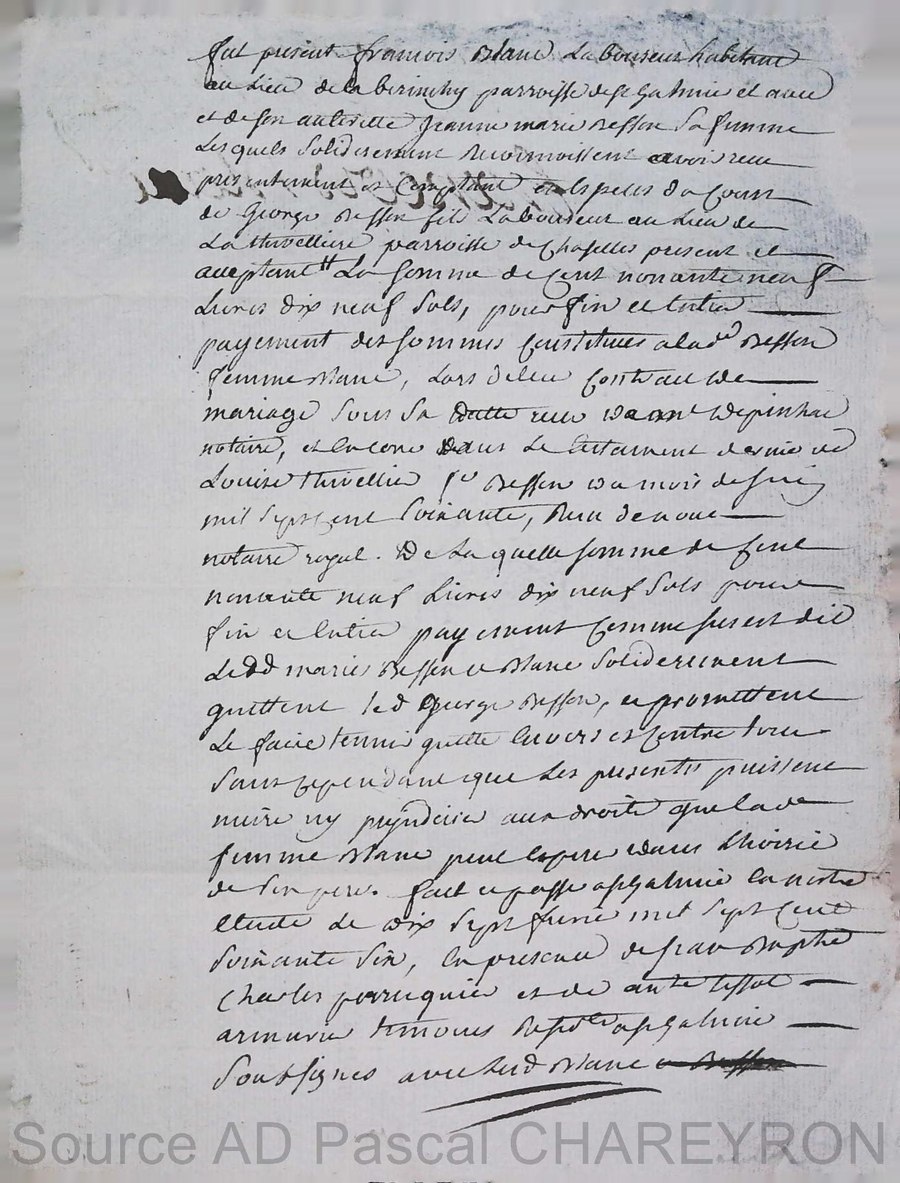 fut présent francois Blanc Laboureur habitant
au Lieu de la berinchy parroisse de St Galmie et avec
et de son authorité Jeanne marie Besson Sa femme
Lesquels Soliderement Reconnoissent avoir receu
presentement et Comptant en Especes du Cours
de George Besson fils Laboureur au Lieu de
La thivelliere parroisse de Chaselles present et
acceptant La Somme de Cent nonante neuf
Livres dix neuf Sols, pour fin et Entier
payement des Sommes Constituées a lad. Besson
femme Blanc, Lors de leur Contract de
mariage Sous Sa datte receu de me Depinhac
notaire, et Encore dans Le testament dernier de
Louise thivellier fe Besson du mois de Juin
mil Sept Cent Soixante, Receu de nous
notaire royal. De La quelle Somme de Cent
nonante neuf Livres dix neuf Sols pour
fin et Entier payement Comme sus est dit
Led d mariés Besson et Blanc Soliderement
quittent led George Besson, et promettent
Le faire tenir quitte Envers et Contre tous
Sans cependant que Les presentes puissent
nuire ny prejudicier aux droits que lad
femme Blanc peut Esperer dans L'hoirie
de Son pere. fait et passé a St Galmie En notre
Etude Le dix Sept Juin mil Sept Cent
Soixante Six, En presence de Jean Baptte
Charles perruquier et de ante tissot
armurier temoins a St Galmie
Soussignés avec Led Blanc
Source AD Pascal CHAREYRON